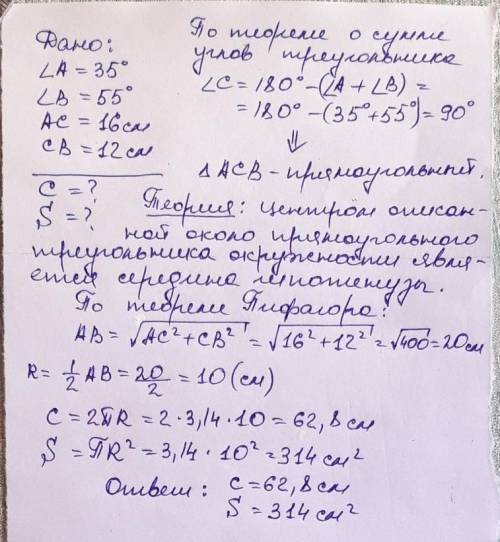 Дано:
∠A = 35°
∠B = 55°
AC = 16 см
CB = 12 см
C = ?
S = ?
По теореме о сумме
углов треугольника
∠C = 180° – (∠A + ∠B) =
= 180° – (35° + 55°) = 90°
⇓
△ACB – прямоугольный.
Теория: центром описан-
ной около прямоугольного
треугольника окружности явля-
ется середина гипотенузы.
По теореме Пифагора:
AB = √(AC² + CB²) = √(16² + 12²) = √400 = 20 см
R = 1/2 AB = 20/2 = 10 (см)
C = 2πR = 2 · 3,14 · 10 = 62,8 см
S = πR² = 3,14 · 10² = 314 см²
Ответ: C = 62,8 см
S = 314 см²